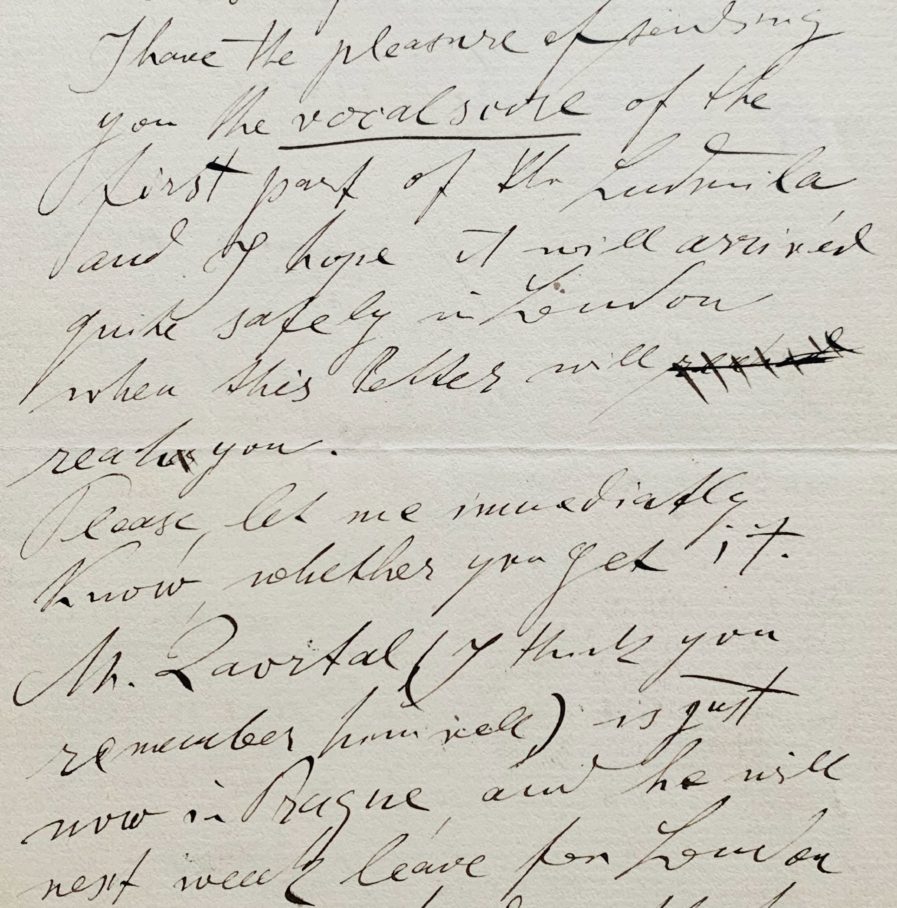 I have the pleasure of sending
you the vocal score of the
first part of the Ludmila
and I hope it will arrived
quite safely in London
when this letter will
reach you.
Please, let me immediatly
Know, whether you get it.
Mr. Zavrtal (I think you
remember him well) is just
now in Prague, and he will
next week leave for London